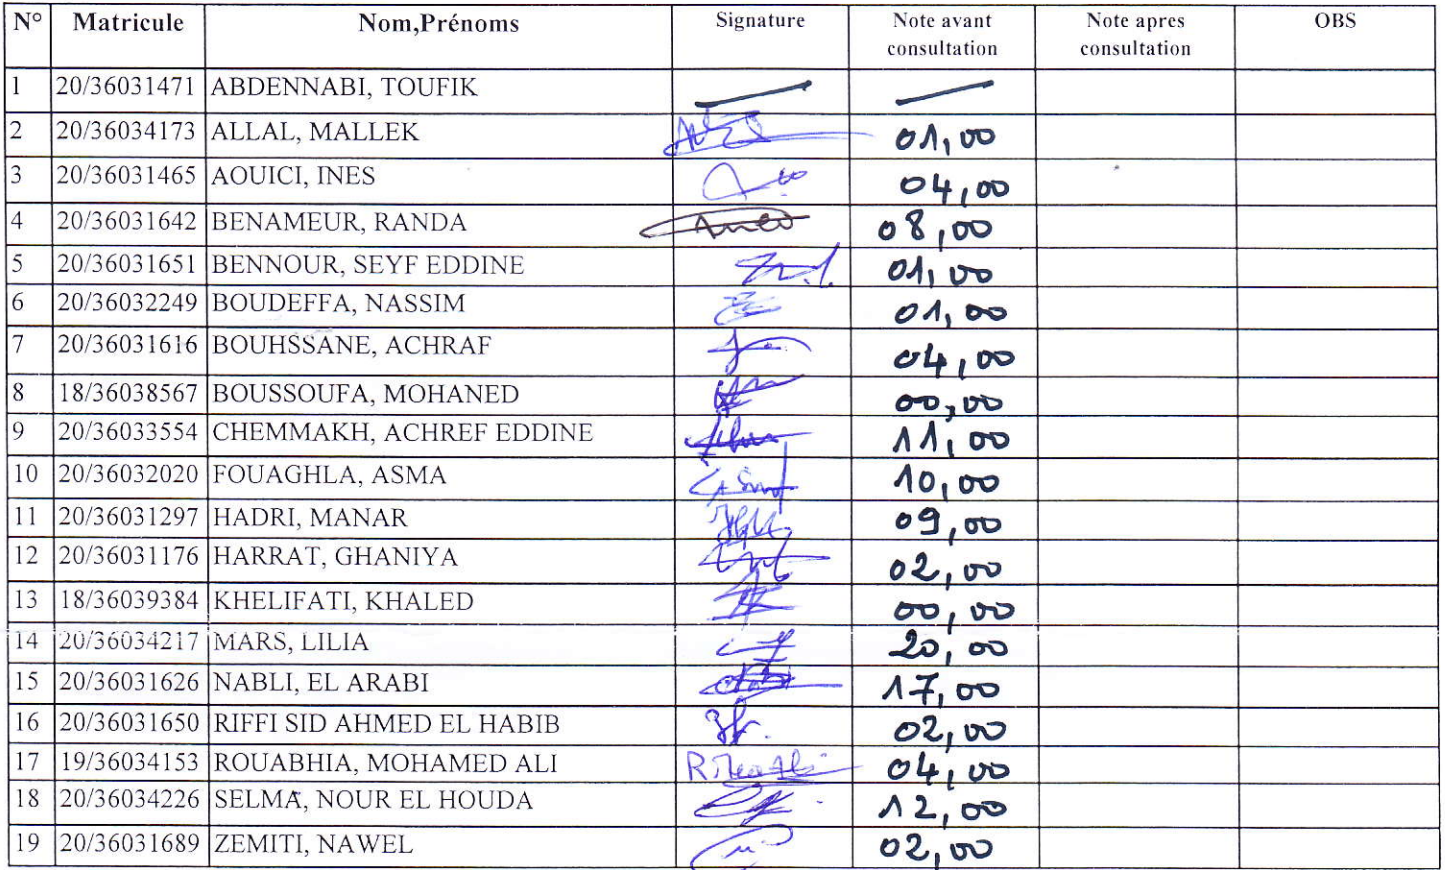 N° Matricule Nom,Prénoms Signature Note avant consultation Note apres consultation OBS
1 20/36031471 ABDENNABI, TOUFIK
2 20/36034173 ALLAL, MALLEK 01,00
3 20/36031465 AOUICI, INES 04,00
4 20/36031642 BENAMEUR, RANDA 08,00
5 20/36031651 BENNOUR, SEYF EDDINE 01,00
6 20/36032249 BOUDEFFA, NASSIM 01,00
7 20/36031616 BOUHSSANE, ACHRAF 04,00
8 18/36038567 BOUSSOUFA, MOHANED 00,00
9 20/36033554 CHEMMAKH, ACHREF EDDINE 11,00
10 20/36032020 FOUAGHLA, ASMA 10,00
11 20/36031297 HADRI, MANAR 09,00
12 20/36031176 HARRAT, GHANIYA 02,00
13 18/36039384 KHELIFATI, KHALED 00,00
14 20/36034217 MARS, LILIA 20,00
15 20/36031626 NABLI, EL ARABI 17,00
16 20/36031650 RIFFI SID AHMED EL HABIB 02,00
17 19/36034153 ROUABHIA, MOHAMED ALI 04,00
18 20/36034226 SELMA, NOUR EL HOUDA 12,00
19 20/36031689 ZEMITI, NAWEL 02,00